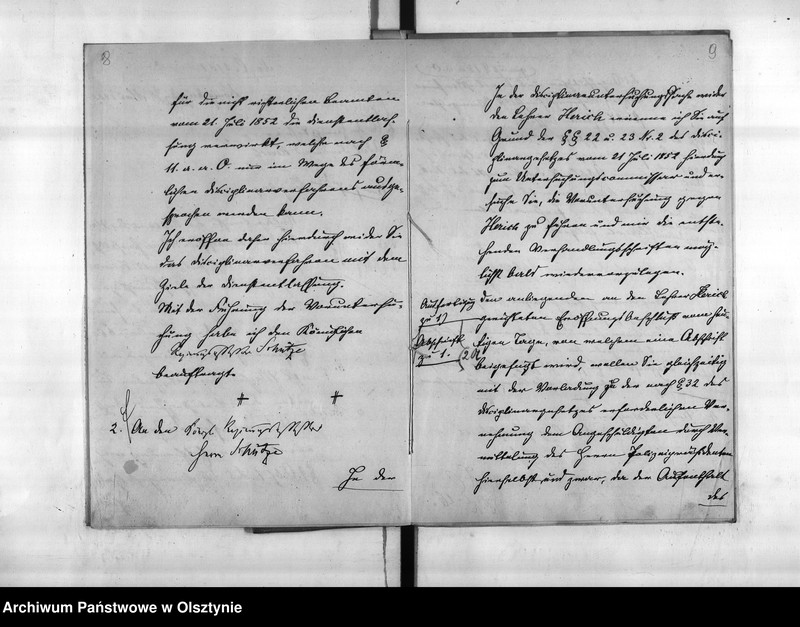 8
für die nicht richterlichen Beamten
vom 21. Juli 1852 die Dienstentlas-
sung verwirkt, welche nach §
11. a. a. O. nur im Wege des förm-
lichen Disciplinarverfahrens ausge-
sprochen werden kann.
Ich eröffne daher hierdurch wider Sie
das Disciplinarverfahren mit dem
Ziele der Dienstentlassung.
Mit der Führung der Voruntersu-
chung habe ich den Königlichen
Schütze
beauftragt.
2. An den Königl.
Herrn Schütze
In der
9
In der Disciplinaruntersuchungssache wider
den Lehrer Harich ernenne ich Sie auf
Grund der §§ 22 u. 23 N. 2 des Disci-
plinargesetzes vom 21 Juli 1852 hierdurch
zum Untersuchungscommissar und er-
suche Sie, die Voruntersuchung gegen
Harich zu führen und mir die entste-
henden Verhandlungsschriften mög-
lichst bald wiedervorzulegen.
Ausfertigung
zu 1)
Abschrift
zu 1.
Den anliegenden an den Lehrer Harich
gerichteten Eröffnungsbeschluß vom heu-
tigen Tage, von welchem eine Abschrift
beigefügt wird, wollen Sie gleichzeitig
mit der Vorladung zu der nach § 32 des
Disciplinargesetzes erforderlichen Ver-
nehmung dem Angeschuldigten durch Ver-
mittelung des Herrn Polizeipräsidenten
hierselbst und zwar, da der Aufenthalt
des
Archiwum Państwowe w Olsztynie